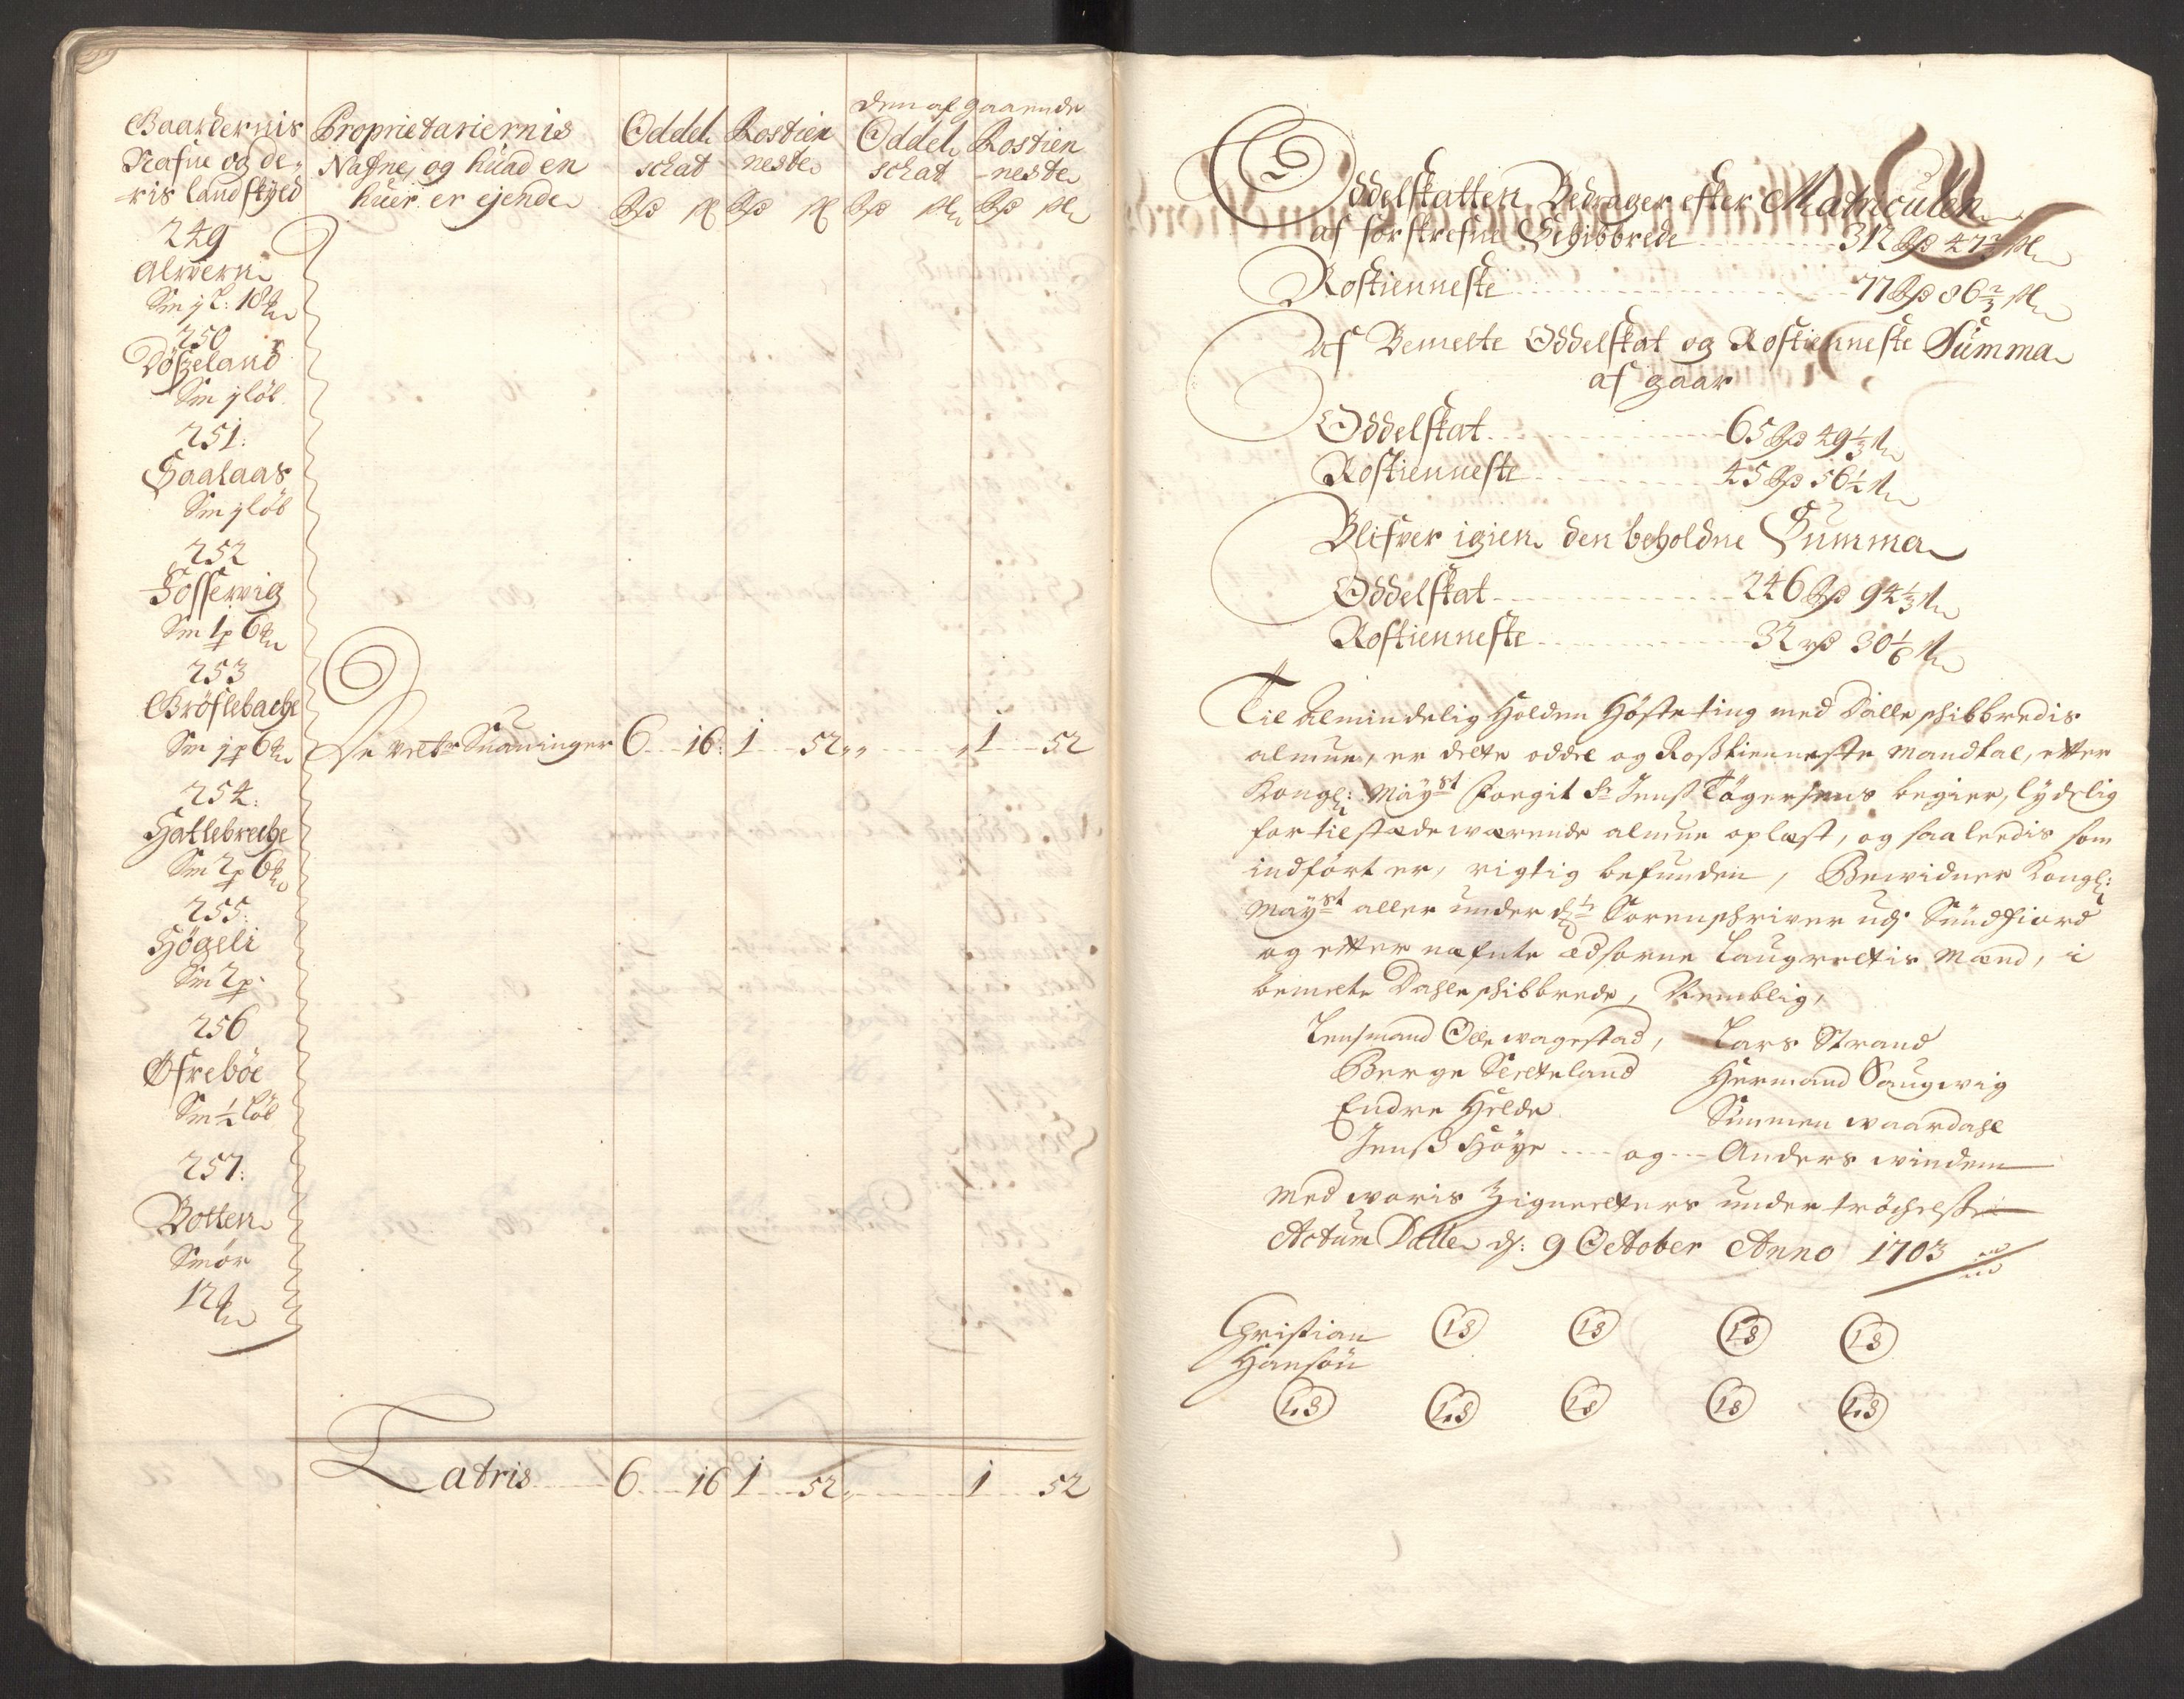 Gaardernis
Nafne og de-
ris landskyld
Proprietariernis
Nafne, og huad en
huer er ejende
Oddel
schat
Rostien
neste
den af gaaende
Oddel
schat
Rostien
-neste
249
alvern
Sm j L: 18
250
Döszeland
Sm j löb
251:
Saalaas
Sm j löb
252
Fossevig
Sm 1 p 6
253
Gröslebache
Sm j p 6
De Suaninger 6 16: 1 52 „ „ 1 52
254:
Hatlebreche
Sm 2 p 6
255:
Högeli
Sm 2 p
256
Ofreböe
Sm ½ löb
257:
Botten
Smör
12
Latris 6 16 1 52 „ 1 52
Oddelskatten Bedrager efter Matriculen
af forskrefne Schibbrede 312 Rd 47⅔
Rostienneste 77 Rd 86⅔
Af Bemelte Oddelskat og Rostienneste Summa
af gaar
Oddelskat 65 Rd 49⅓
Rostienneste 45 Rd 56½
Blifver igien den beholdne Summa
Oddelskat 246 Rd 94⅓
Rostienneste 32 rd 30⅙
Til Almindelig Holden Höste ting med Dalle schibbredis
almue, er dette oddel og Rosstienneste mandtal, efter
Kongl: Mayst Foegit Sr Jenss Tögersens begier, lydelig
for tilstædeværende almue oplæst, og saaledis som
indfört er, rigtig befunden, Bevidner Kongl:
Mayst aller under Sorenschriver udj Sundfiord
og efter nafnte ædsorne Laugrettis Mænd, i
bemelte Dahle schibbrede, Nemblig,
Lensmand Olle wagestad, Lars Strand
Berge Sletteland Hermand Saugwig
Endre Helde Simmen waardahl
Jenss Höye og Anders windem
Med voris Zigneetters undertröchelse
Actum Dalle dj: 9 October Anno 1703
Christian
Hansön
LS LS LS LS
LS LS LS LS LS